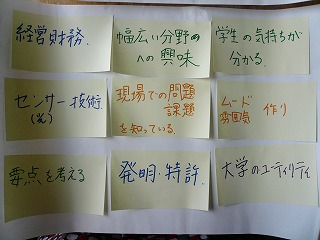 経営財務.
幅広い分野の
への興味
学生の気持ちが
分かる.
センサー技術
(光)
現場での問題
課題
を知っている.
ムード
雰囲気 作り
要点を考える
発明・特許.
大学のユーティリティ